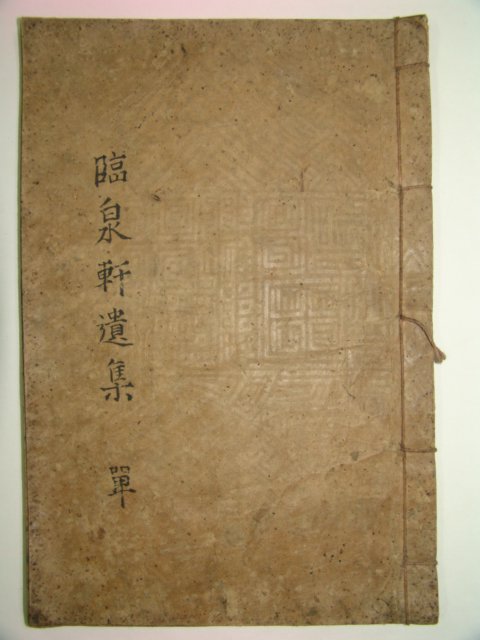 臨泉軒遺集 單